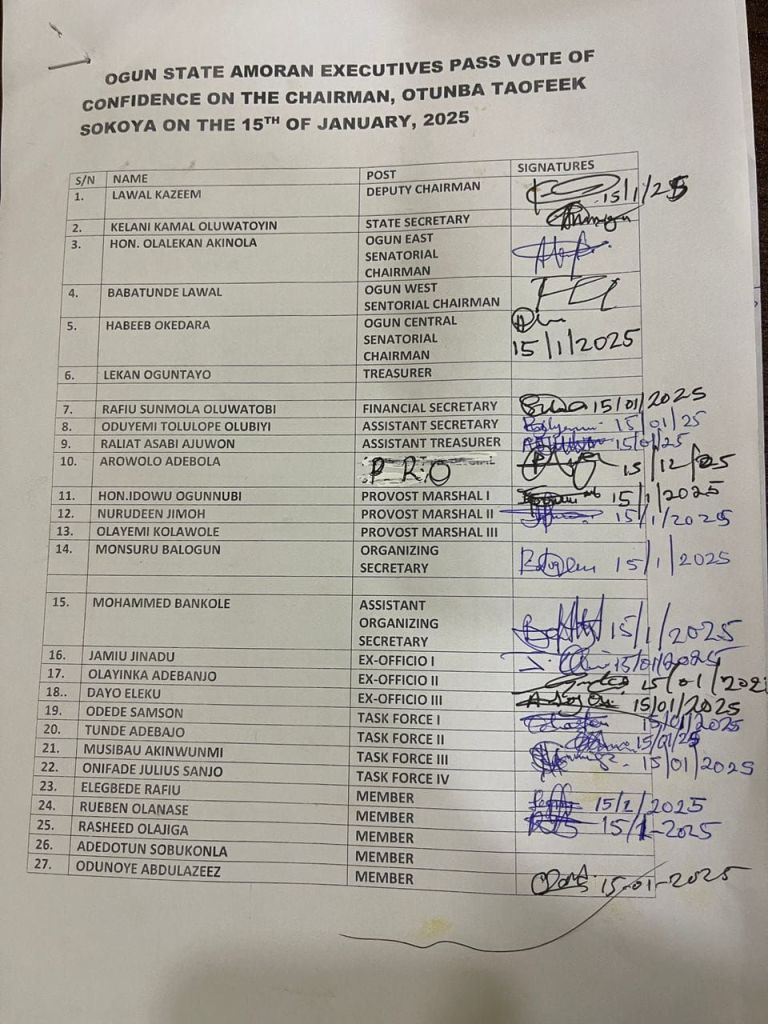 OGUN STATE AMORAN EXECUTIVES PASS VOTE OF
CONFIDENCE ON THE CHAIRMAN, OTUNBA TAOFEEK
SOKOYA ON THE 15TH OF JANUARY, 2025
S/N NAME POST SIGNATURES
1. LAWAL KAZEEM DEPUTY CHAIRMAN 15/1/25
2. KELANI KAMAL OLUWATOYIN STATE SECRETARY
3. HON. OLALEKAN AKINOLA OGUN EAST
SENATORIAL
CHAIRMAN
4. BABATUNDE LAWAL OGUN WEST
SENTORIAL CHAIRMAN
5. HABEEB OKEDARA OGUN CENTRAL
SENATORIAL 15/1/2025
CHAIRMAN
6. LEKAN OGUNTAYO TREASURER
7. RAFIU SUNMOLA OLUWATOBI FINANCIAL SECRETARY 15/01/2025
8. ODUYEMI TOLULOPE OLUBIYI ASSISTANT SECRETARY 15/01/25
9. RALIAT ASABI AJUWON ASSISTANT TREASURER 15/01/25
10. AROWOLO ADEBOLA P R O 15/12/25
11. HON.IDOWU OGUNNUBI PROVOST MARSHAL I 15/1/2025
12. NURUDEEN JIMOH PROVOST MARSHAL II 15/1/2025
13. OLAYEMI KOLAWOLE PROVOST MARSHAL III
14. MONSURU BALOGUN ORGANIZING
SECRETARY 15/1/2025
15. MOHAMMED BANKOLE ASSISTANT
ORGANIZING
SECRETARY 15/1/2025
16. JAMIU JINADU EX-OFFICIO I 15/01/2025
17. OLAYINKA ADEBANJO EX-OFFICIO II 15/01/202
18.. DAYO ELEKU EX-OFFICIO III 15/01/2025
19. ODEDE SAMSON TASK FORCE I 15/01/2025
20. TUNDE ADEBAJO TASK FORCE II 15/01/25
21. MUSIBAU AKINWUNMI TASK FORCE III 15/01/2025
22. ONIFADE JULIUS SANJO TASK FORCE IV
23. ELEGBEDE RAFIU MEMBER 15/1/2025
24. RUEBEN OLANASE MEMBER 15/1-2025
25. RASHEED OLAJIGA MEMBER
26. ADEDOTUN SOBUKONLA MEMBER
27. ODUNOYE ABDULAZEEZ MEMBER 15-01-2025